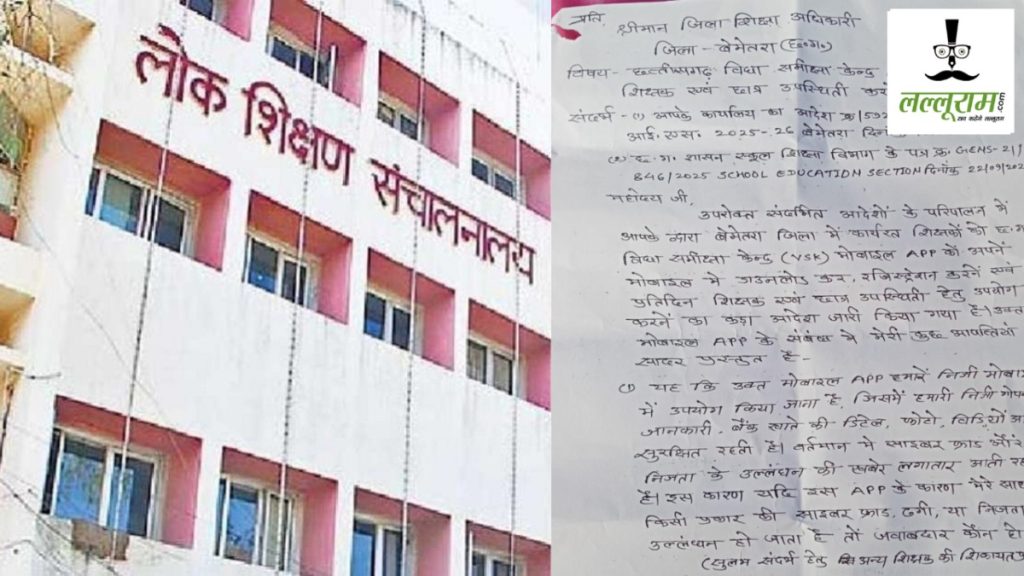 लोक शिक्षण संचालनालय
लल्लूराम.com
प्रति,
श्रीमान जिला शिक्षा अधिकारी
जिला - बेमेतरा (छ०ग०)
विषय - छत्तीसगढ़ विद्या समीक्षा केन्द्र
शिक्षक एवं छात्र उपस्थिती
संदर्भ - (1) आपके कार्यालय का आदेश क्र
आई. एस. 2025-26 बेमेतरा
(2) छ.ग. शासन स्कूल शिक्षा विभाग के पत्र क्र. GENS-21/
846/2025 SCHOOL EDUCATION SECTION दिनांक 22/09/
महोदय जी,
उपरोक्त संदर्भित आदेशों के परिपालन में
आपके द्वारा बेमेतरा जिला में कार्यरत शिक्षकों को छ.ग.
विद्या समीक्षा केन्द्र (VSK) मोबाइल APP को अपने
मोबाइल में डाउनलोड कर, रजिस्ट्रेशन करने एवं
प्रतिदिन शिक्षक एवं छात्र उपस्थिती हेतु उपयोग
करनें का कड़ा आदेश जारी किया गया है। उक्त
मोबाइल APP के संबंध में मेरी कुछ आपत्तियाँ
सादर प्रस्तुत है -
(1) यह कि उक्त मोबाइल APP हमारें निजी
में उपयोग किया जाना है, जिसमें हमारी निजी
जानकारी, बैंक खाते की डिटेल, फोटो, विडियों
सुरक्षित रहती है। वर्तमान में साइबर फ्राड और
निजता के उल्लंघन की खबरे लगातार आती
है। इस कारण यदि इस APP के कारण मेरे
किसी प्रकार की साइबर फ्राड, ठगी, या निजता
उल्लंघन हो जाता है तो जवाबदार कौन
(सुलभ संदर्भ हेतु अन्य शिक्षक की